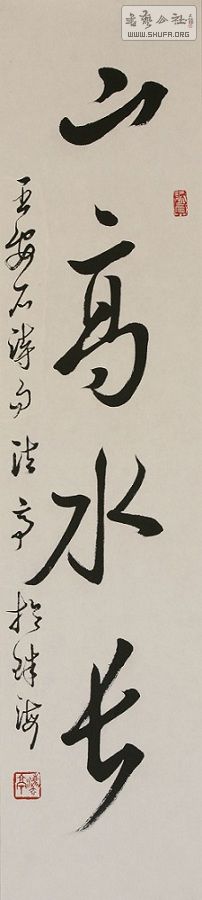 書藝公社
WWW.SHUFA.ORG
山高水长
王安石诗句 法亭 於珠海